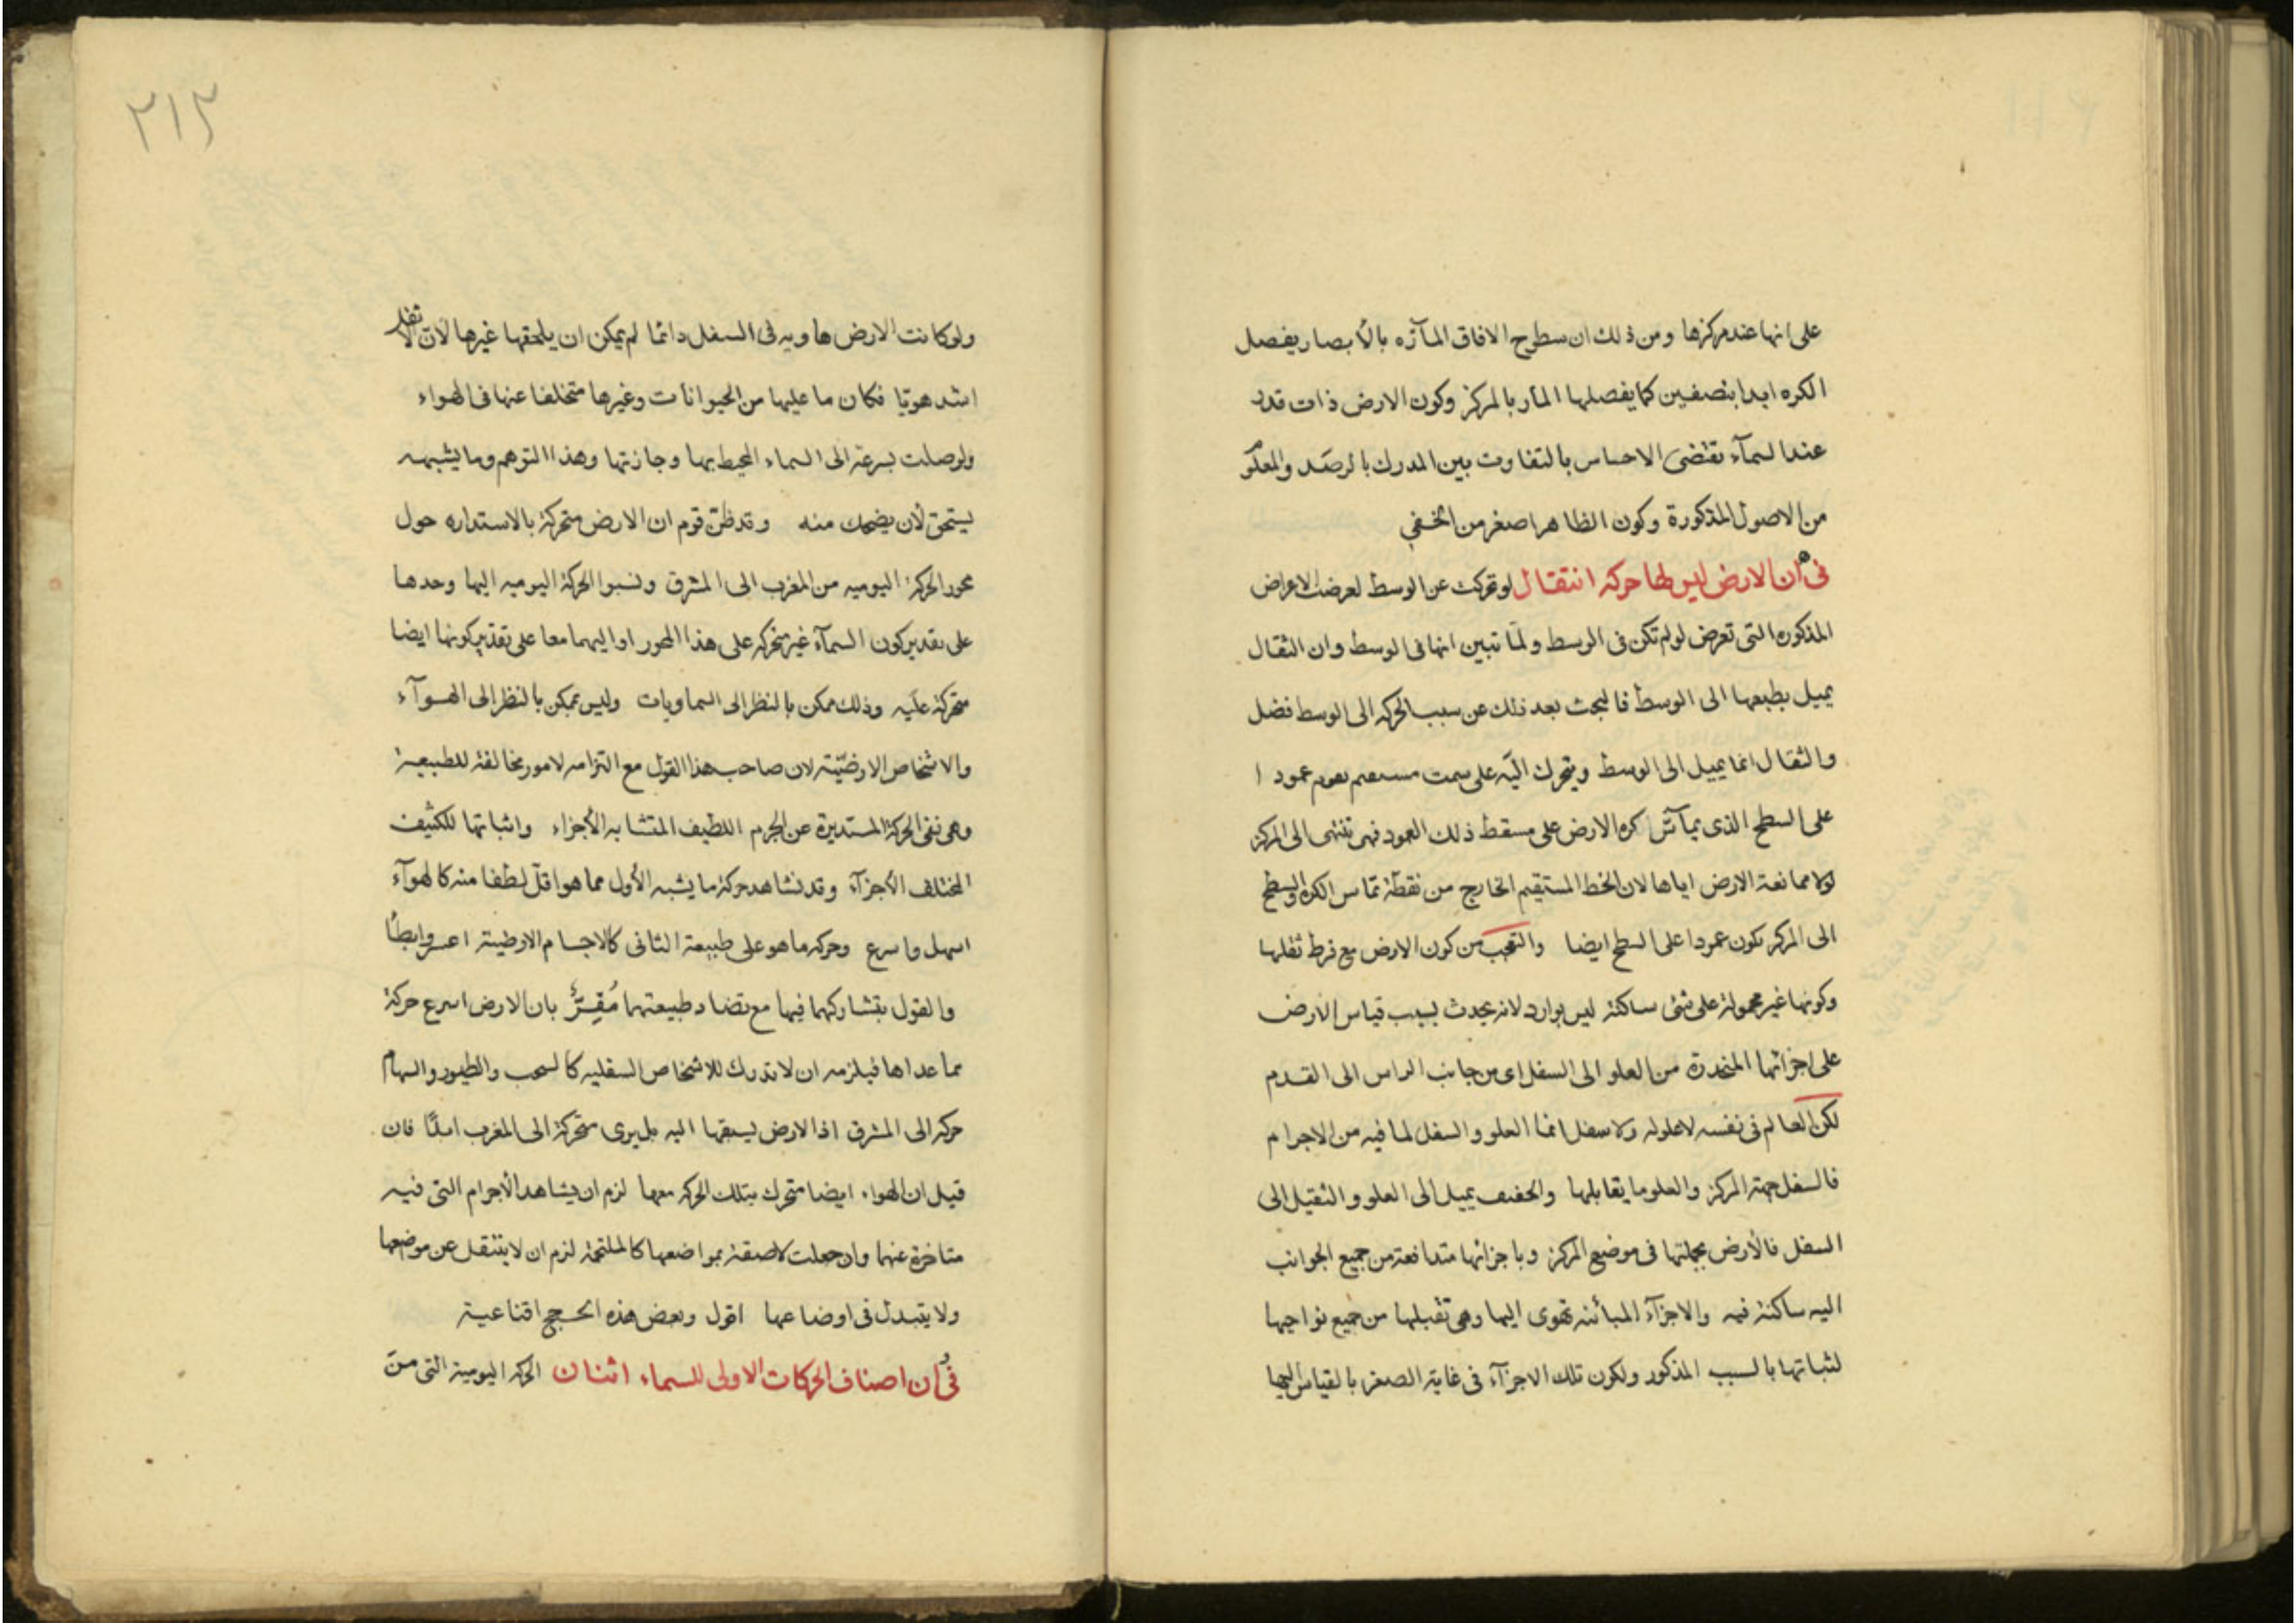 على انها عند مركزها ومن ذلك ان سطوح الافاق المآرّه بالأبصار يفصل
الكره ابدا بنصفين كما يفصلها المار بالمركز وكون الارض ذات قدر
عند السمآء تقتضى الاحساس بالتفاوت بين المدرك بالرصد والمعلوم
من الاصول المذكورة وكون الظاهر اصغر من الخفي
فى ه ان الارض ليس لها حركه انتقال لو تحركت عن الوسط لعرضت الاعراض
المذكوره التى تعرض لو لم تكن فى الوسط ولمّا تبين انها فى الوسط وان الثقال
يميل بطبعها الى الوسط فالبحث بعد ذلك عن سبب الحركه الى الوسط فضل
والثقال انما يميل الى الوسط ويتحرك اليّه على سمت مستقيم يقوم عمودا
على السطح الذى يمآسّ كره الارض على مسقط ذلك العمود فهى تنتهى الى المركز
لولا ممانعة الارض اياها لان الخط المستقيم الخارج من نقطة تماس الكره والسطح
الى المركز يكون عمودا على السطح ايضا والتعجب من كون الارض مع فرط ثقلها
وكونها غير محمولة على شئ ساكنة ليس بوارد لانه يحدث بسبب قياس الارض
على اجزائها المنحدرة من العلو الى السفل اى من جانب الراس الى القدم
لكن العالم فى نفسه لا علو له ولا سفل انما العلو والسفل لما فيه من الاجرام
فالسفل جهة المركز والعلو ما يقابلها والخفيف يميل الى العلو والثقيل الى
السفل فالأرض بجملتها فى موضع المركز وباجزائها متدافعة من جميع الجوانب
اليه ساكنة فيه والاجزآء المبائنه تهوى اليها وهى تقبلها من جميع نواحيها
لثباتها بالسبب المذكور ولكون تلك الاجزآء فى غاية الصغر بالقياس اليها
٢١٢
ولو كانت الارض هاويه فى السفل دائما لم يمكن ان يلحقها غيرها لأن الاثقل
اشد هويّا فكان ما عليها من الحيوانات وغيرها متخلفا عنها فى الهواء
ولوصلت بسرعة الى السماء المحيط بها وجازتها وهذا التوهم وما يشبهه
يستحق لأن يضحك منه وقد ظنّ قوم ان الارض متحركة بالاستداره حول
محور الحركة اليوميه من المغرب الى المشرق ونسبوا الحركة اليوميه اليها وحدها
على تقدير كون السمآء غير متحركه على هذا المحور او اليهما معا على تقدير كونها ايضا
متحركة عليه وذلك ممكن بالنظر الى السماويات وليس بممكن بالنظر الى الهوآء
والاشخاص الارضيّة لان صاحب هذا القول مع التزامه لامور مخالفة للطبيعة
وهى نفى الحركة المستديرة عن الجرم اللطيف المتشابه الأجزاء واثباتها للكثيف
المختلف الأجزآء وقد نشاهد حركة ما يشبه الأول مما هو اقلّ لطفا منه كالهوآء
اسهل واسرع وحركه ما هو على طبيعة الثانى كالاجسام الارضية اعسر وابطأ
والقول بتشاركهما فيها مع تضاد طبيعتهما مُقِرٌّ بان الارض اسرع حركة
مما عداها فيلزمه ان لا تدرك للاشخاص السفليه كالسحب والطيور والسهام
حركه الى المشرق اذ الارض يسبقها اليه بل يرى متحركة الى المغرب ابدًا فان
قيل ان الهواء ايضا متحرك بتلك الحركه معها لزم ان يشاهد الأجرام التى فيه
متاخرة عنها وان جعلت لاصقة بمواضعها كالملتحمة لزم ان لا ينتقل عن موضعها
ولا يتبدل فى اوضاعها اقول وبعض هذه الحجج اقناعية
فى و ان اصناف الحركات الاولى للسماء اثنان الحركه اليومية التى من